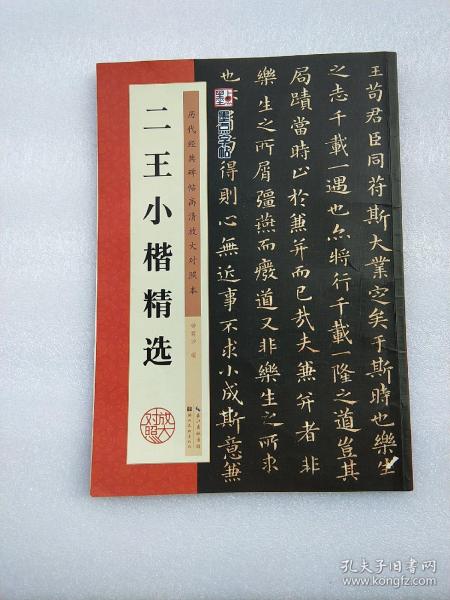 二王小楷精选
历代经典碑帖高清放大对照本
放大对照
墨点字帖
王苟君臣同符斯大業定矣于斯時也樂生
之志千載一遇也亦將行千載一隆之道豈其
局蹟當時止於兼并而已哉夫兼并者非
樂生之所屑彊燕而廢道又非樂生之所求
也得則心無近事不求小成斯意兼
孔夫子旧书网
www.kongfz.com